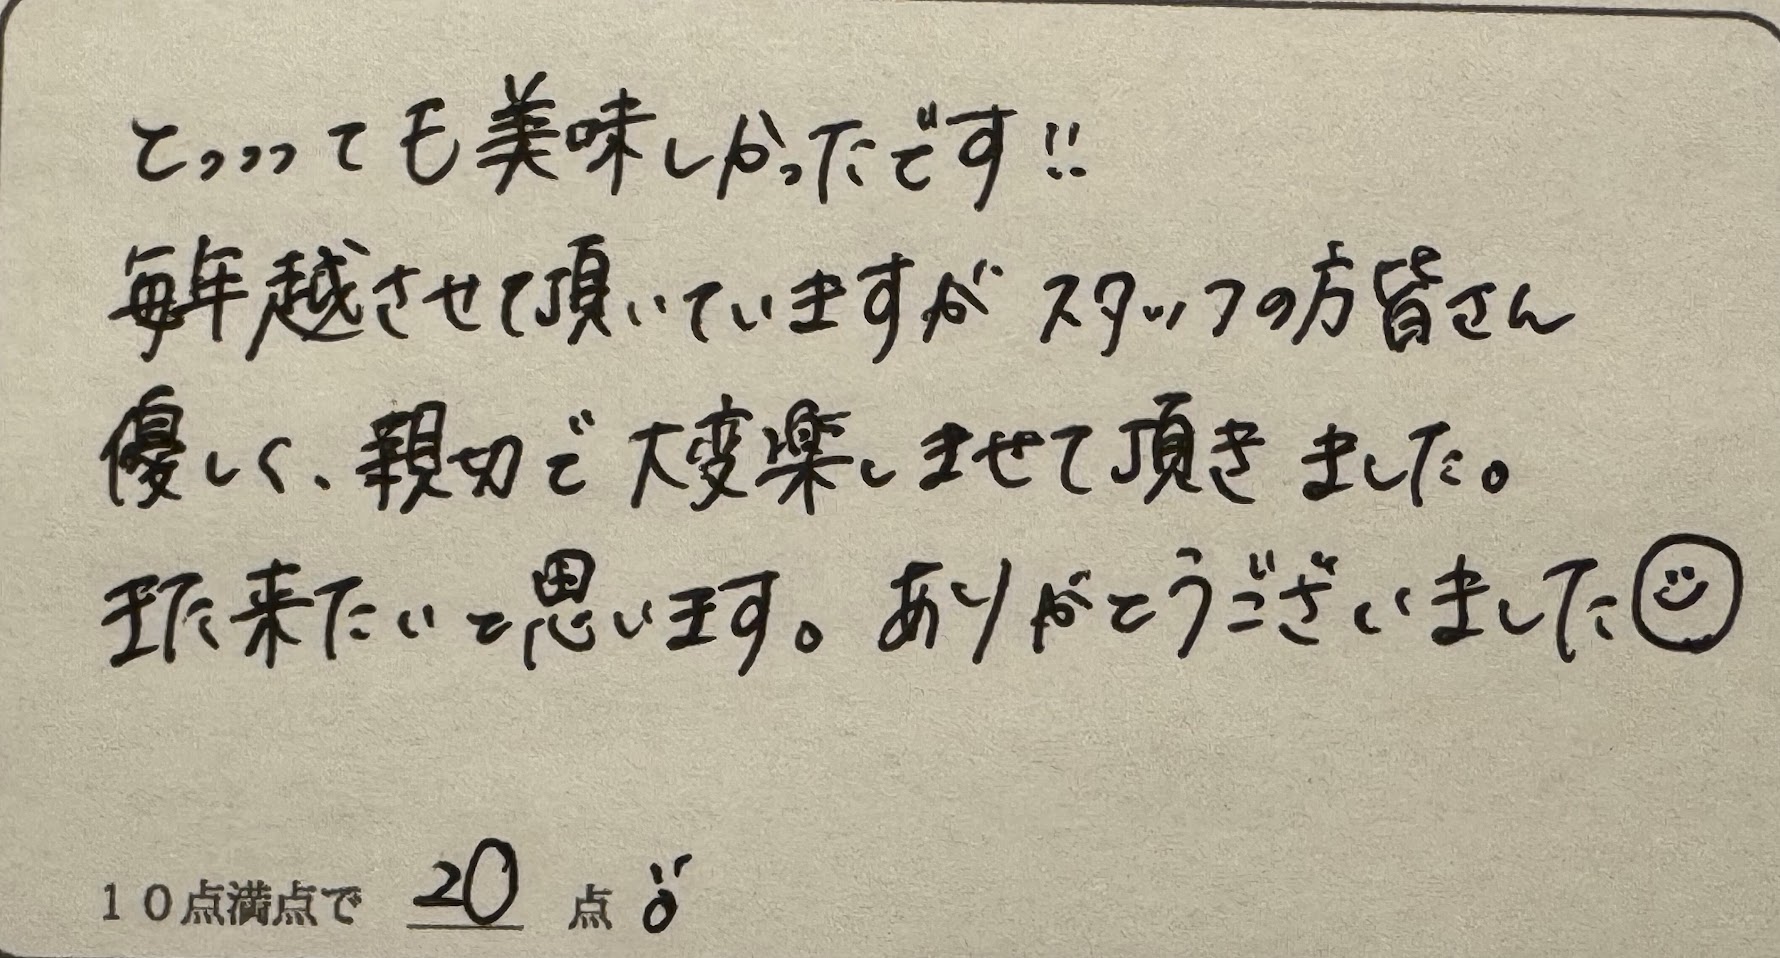 とっっっても美味しかったです!!
毎年越させて頂いていますが スタッフの方皆さん
優しく、親切で大変楽しませて頂きました。
また来たいと思います。ありがとうございました
10点満点で 20 点